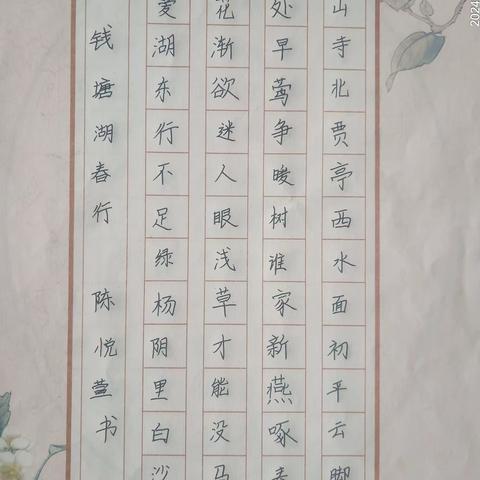 山寺北贾亭西水面初平云脚
处早莺争暖树谁家新燕啄春
花渐欲迷人眼浅草才能没马
爱湖东行不足绿杨阴里白沙
钱塘湖春行 陈悦萱书
2024